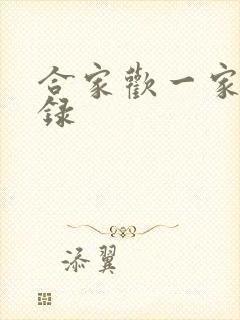 合家歡一家
録
添翼